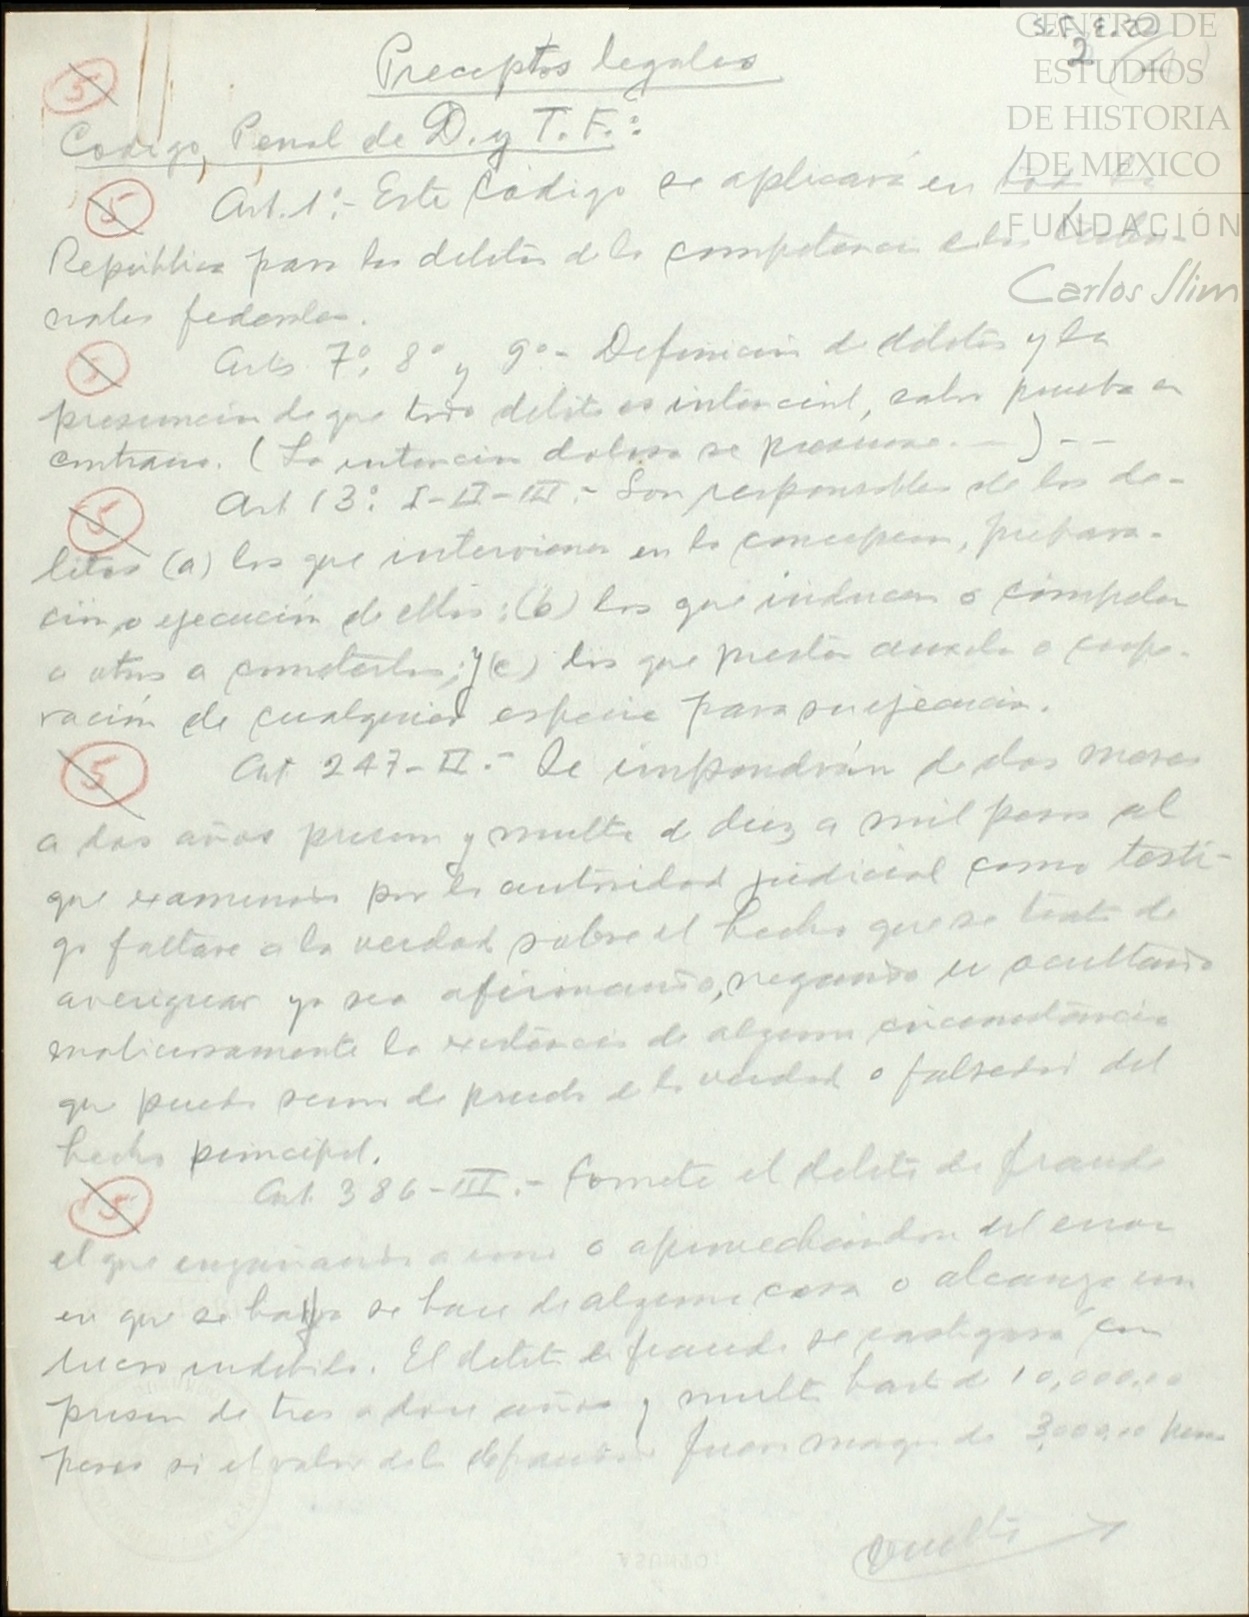 S.F. E. 22
2
CENTRO DE
ESTUDIOS
DE HISTORIA
DE MEXICO
FUNDACIÓN
Carlos Slim
Preceptos legales
5
Codigo Penal de D. y T. F.:
5 Art. 1º.- Este Código se aplicará en toda la
República para los delitos de la competencia de los tribu-
nales federales.
5 Arts. 7º, 8º y 9º.- Definicion de delitos y la
presunción de que todo delito es intencional, salvo prueba en
contrario. (La intencion dolosa se presume.--)--
5 Art 13º: I-II-III.- Son responsables de los de-
litos (a) los que intervienen en la concepcion, prepara-
ción o ejecución de ellos; (b) los que inducen o compelen
a otros a cometerlos; y (c) los que prestan auxilio o coope-
ración de cualquier especie para su ejecución.
5 Art 247-II.- Se impondrán de dos meses
a dos años prision y multa de diez a mil pesos al
que examinado por la autoridad judicial como testi-
go faltare a la verdad sobre el hecho que se trata de
averiguar ya sea afirmando, negando u ocultando
maliciosamente la existencia de alguna circunstancia
que pueda servir de prueba de la verdad o falsedad del
hecho principal.
5 Art. 386-III.- Comete el delito de fraude
el que engañando a uno o aprovechandose del error
en que se haya se hace de alguna cosa o alcanza un
lucro indebido. El delito de fraude se castigará con
prision de tres a doce años y multa hasta de 10,000.00
pesos si el valor de lo defraudado fuere mayor de 3,000.00 pesos
Vuelta →